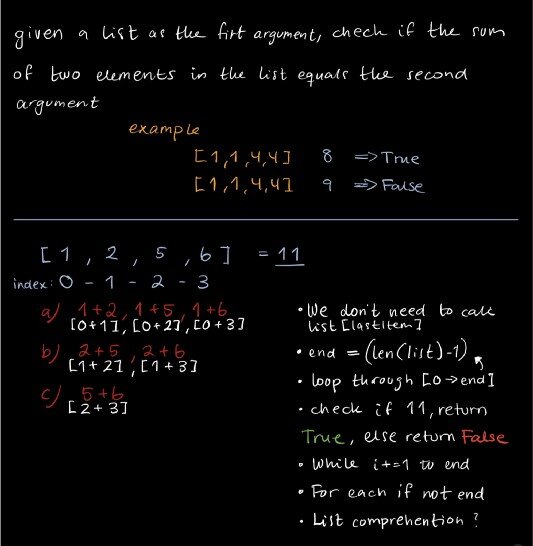 given a list as the firt argument, check if the sum
of two elements in the list equals the second
argument
example
[1,1,4,4] 8 => True
[1,1,4,4] 9 => False
[1, 2, 5, 6] = 11
index: 0 - 1 - 2 - 3
a) 1+2, 1+5, 1+6
[0+1], [0+2], [0+3]
b) 2+5, 2+6
[1+2], [1+3]
c) 5+6
[2+3]
• We don't need to call
list[lastItem]
• end = (len(list)-1)
• loop through [0→end]
• check if 11, return
True, else return False
• While i+=1 to end
• For each if not end
• List comprehention ?